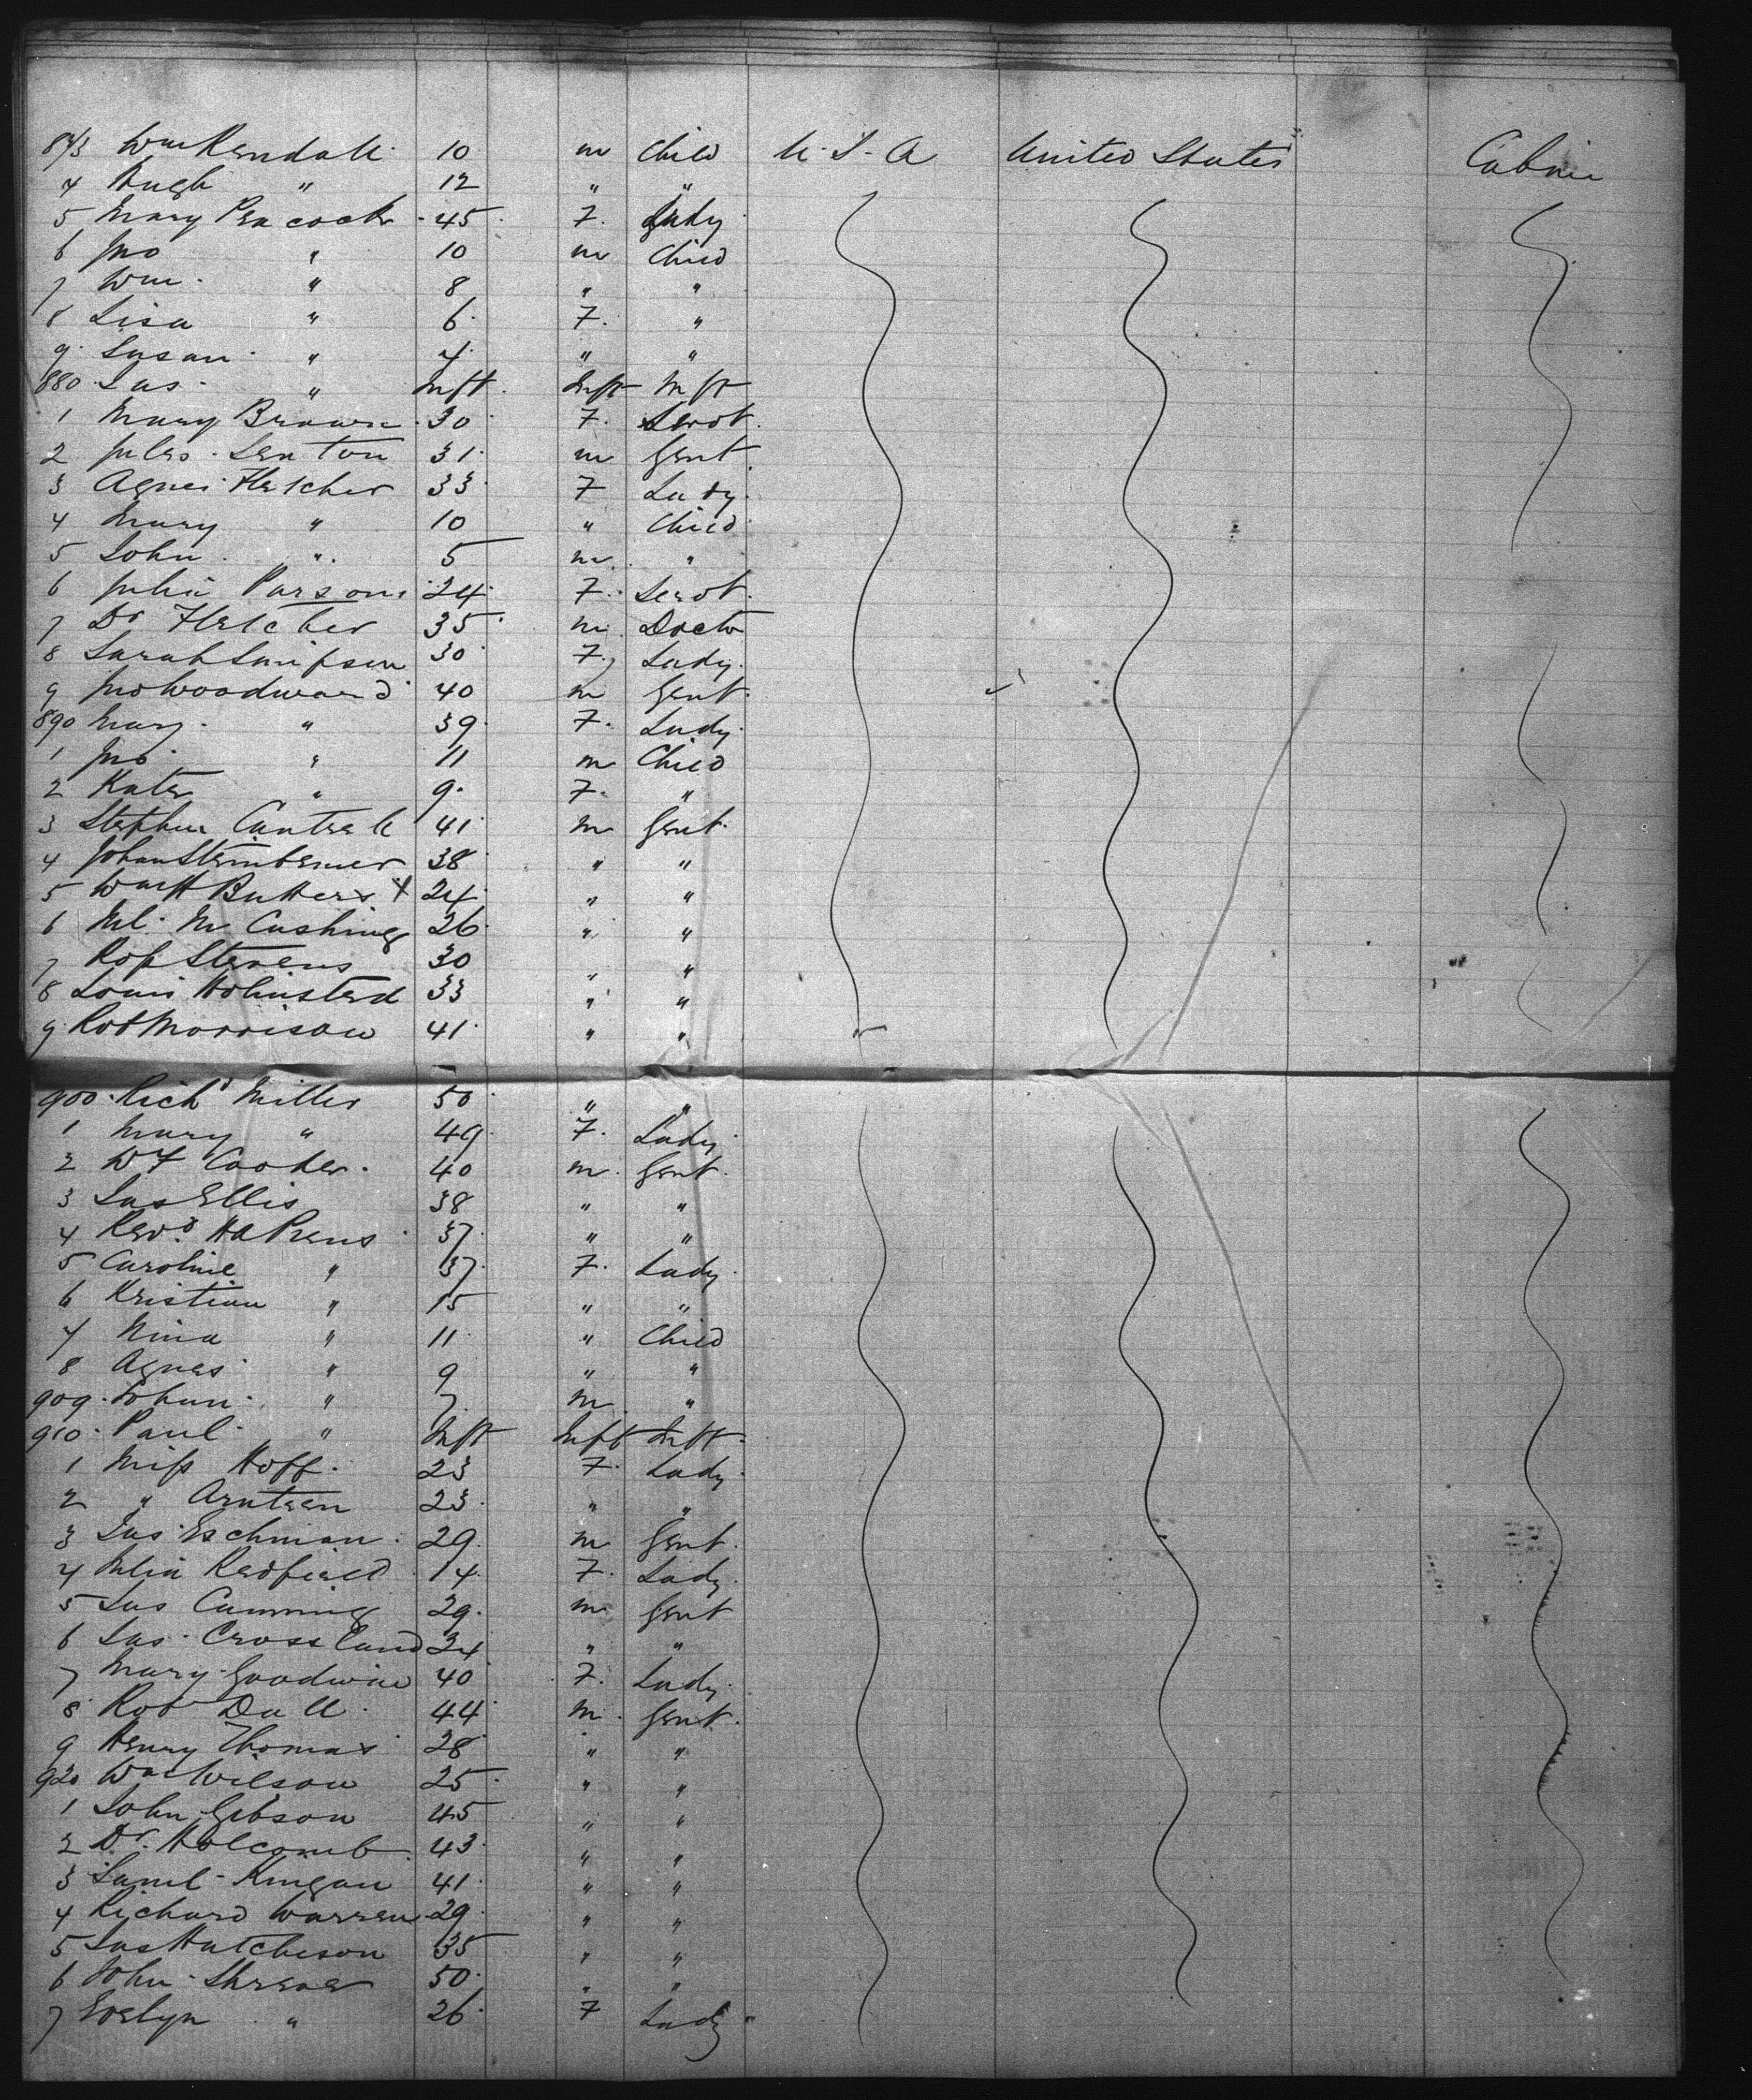 873 Wm Kendall 10 m Child U.S.A United States Cabin
4 Hugh " 12 " "
5 Mary Peacock 45 F. Lady
6 Jno " 10 m Child
7 Wm " 8 " "
8 Lisa " 6 F. "
9 Susan " 4 " "
880 Jas " Inft Inft Inft
1 Mary Brown 30 F. Servt
2 Jules 31 m Gent
3 Agnes Fletcher 33 F Lady
4 Mary " 10 " Child
5 John " 5 m "
6 Julia Parsons 24 F. Servt
7 Dr Fletcher 35 m Doctr
8 Sarah Simpson 30 F. Lady
9 Jno Woodward 40 m Gent
890 Mary " 39 F. Lady
1 Jno " 11 m Child
2 Kate " 9 F. "
3 Stephen Cantrell 41 m Gent
4 Johan 38 " "
5 Wm H Butters X 24 " "
6 Ml. M Cushing 26 " "
7 Stevens 30 " "
8 Louis Holmsted 33 " "
9 Robt Morrison 41 " "
900 Richd Miller 50 " "
1 Mary " 49 F. Lady
2 W F Cooker 40 m Gent
3 Jas Ellis 38 " "
4 Revd. H A Preus 37 " "
5 Caroline " 37 F. Lady
6 Kristian " 15 " "
7 Nina " 11 " Child
8 Agnes " 9 " "
909 Johan " 7 m "
910 Paul " Inft Inft Inft
1 Miss Hoff 23 F. Lady
2 " Arntsen 23 " "
3 Jas Eschman 29 m Gent
4 Julia Redfield 14 F. Lady
5 Jas Cumming 29 m Gent
6 Jas Crossland 34 " "
7 Mary Goodwin 40 F. Lady
8 Robt Dall 44 m Gent
9 Henry Thomas 28 " "
920 Wm Wilson 25 " "
1 John Gibson 45 " "
2 Dr. Holcomb 43 " "
3 Saml Kingan 41 " "
4 Richard Warren 29 " "
5 Jas Hutcheson 35 " "
6 John Shreve 50 " "
7 Evelyn " 26 F Lady